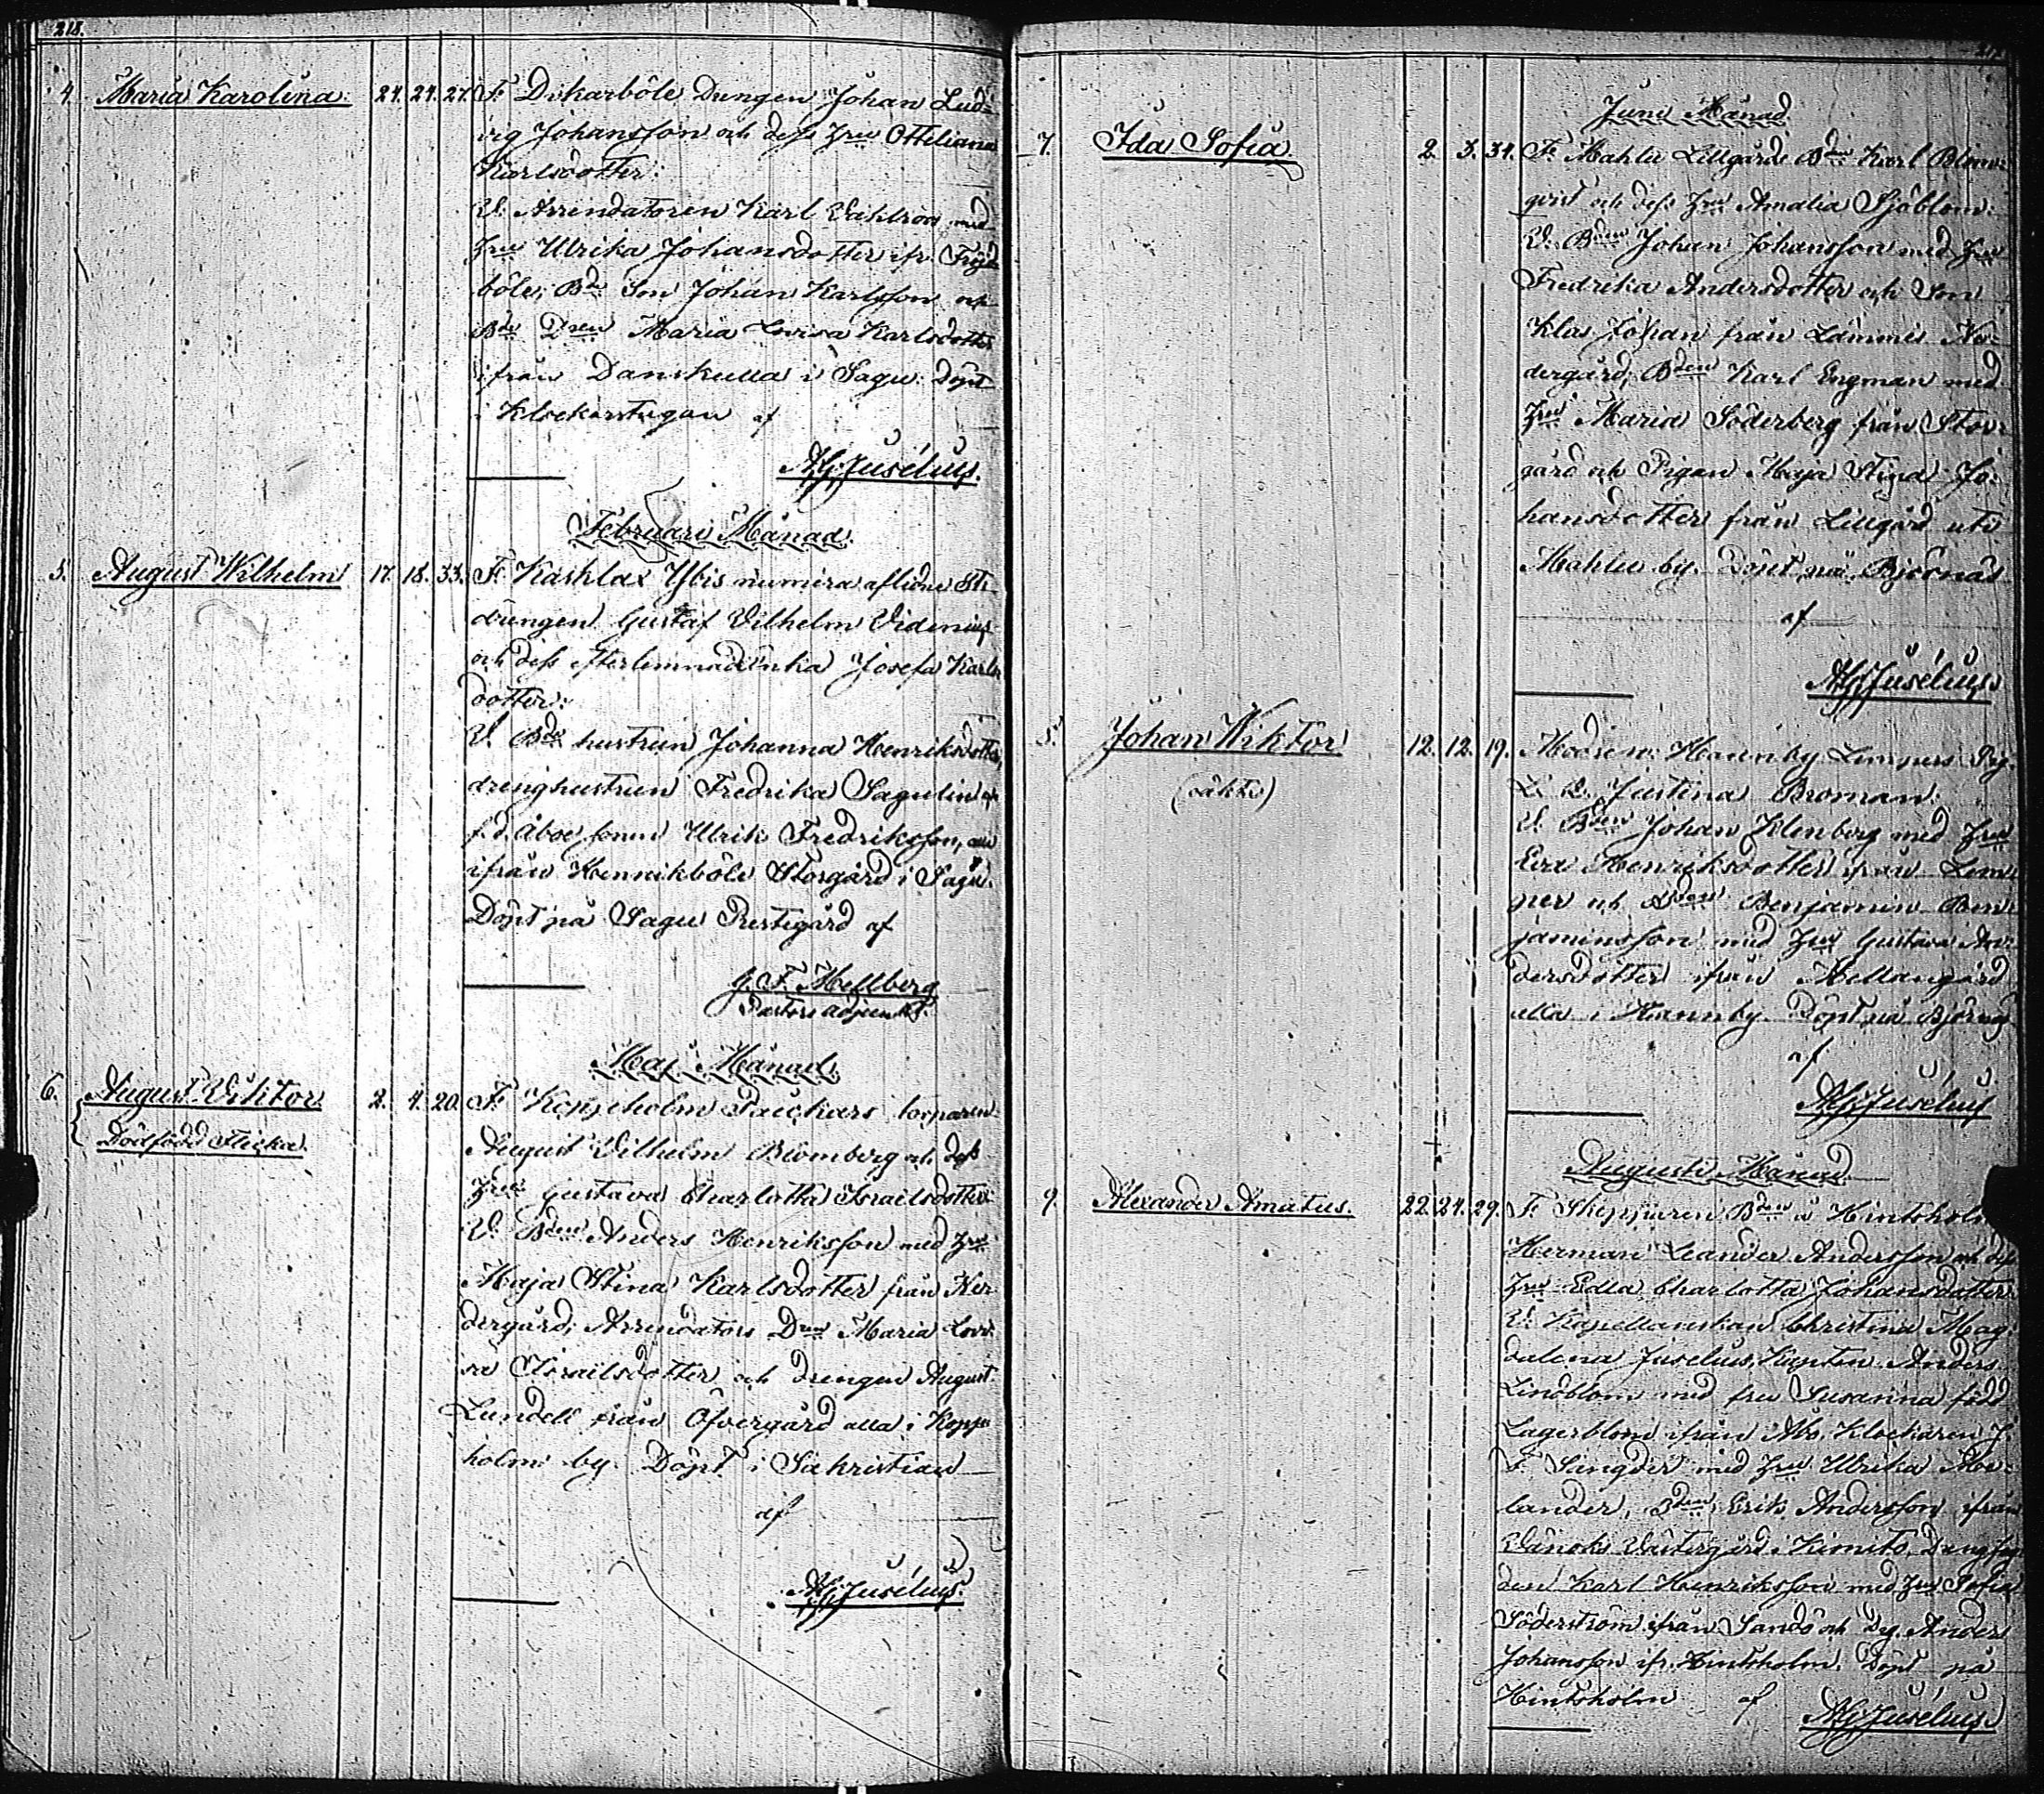 218.
4. Maria Karolina. 24. 24. 27. F. Dikarböle Drengen Johan Lud-
vig Johansson och dess Hru Ottiliana
Karlsdotter.
V. Arrendatoren Karl Vahlroos med
Hru Ulrika Johansdotter ifr. Fröjd-
böle, Bde Son Johan Karlsson och
Bde Dren Maria Lovisa Karlsdotter
ifrån Danskulla i Sagu. Döpt
i Klockarstugan af
Juselius.
Februari Månad.
5. August Wilhelm 17. 18. 33. F. Kasklax Ybis numera aflidne
drengen Gustaf Vilhelm Videnius
och dess efterlemnade Enka Josefa Karls-
dotter.
V. Bde hustrun Johanna Henriksdotter,
drenghustrun Fredrika Sagulin och
f.d. åboe sonen Ulrik Fredriksson, alla
ifrån Hennikböle Storgård i Sagu.
Döpt på Sagu Prestegård af
G. F. Mellberg
Pastors adjunkt.
Maj Månad.
6. August Viktor. 2. 4. 20. F. Koppeholm torparen
Dödfödd flicka.
August Vilhelm Blomberg och dess
Hru Gustava Charlotta Israilsdotter.
V. Bden Anders Henriksson med Hru
Maja Stina Karlsdotter från Ner-
dergård, Arrendators Dren Maria Lovi-
sa Israilsdotter och drengen August
Lundell från Öfvergård alla i Koppe-
holm by. Döpt i Sakristian
af
Juselius.
Juni Månad.
7. Ida Sofia 2. 3. 34. F. Mahlu Lillgårds Bden Karl Blom-
qvist och dess Hru Amalia Sjöblom.
V. Bden Johan Johansson med Hru
Fredrika Andersdotter och Son
Klas Johan från Lammes Ne-
dergård, Bden Karl Engman med
Hru Maria Söderberg från Stor-
gård och Pigan Maja Stina Jo-
hansdotter från Lillgård uti
Mahlu by. Döpt på Björnäs
af
Juselius
Johan Wiktor 12. 12. 19. Modren: Hannby Lempers Pig.
(oäkta)
Justina Broman.
V. Bden Johan Klenberg med Hru
Eva Henriksdotter ifrån Lem-
per och Bden Benjamin Ben-
jaminsson med Hru Gustava An-
dersdotter ifrån Mellangård
alla i Hannby. Döpt på Björnäs
af
Juselius
Augusti Månad.
9. Alexander Amatus. 22. 24. 29. F. Skepparen Bden å Hintsholm
Herman Leander Andersson och dess
Hru Edla Charlotta Johansdotter.
V. Kapellanskan Christina Mag-
dalena Juselius, Kapten Anders
Lindblom med fru Susanna född
Lagerblom ifrån Åbo, Klockaren J.
F. Sångder med Hru Ulrika
lander, Bden Erik Andersson ifrån
Vänoks Västergård i Kimito,
den Karl Henriksson med Hru Sofia
Söderström ifrån Sandö och Dg. Anders
Johansson ifr. Hintsholm. Döpt på
Hintsholm af Juselius.